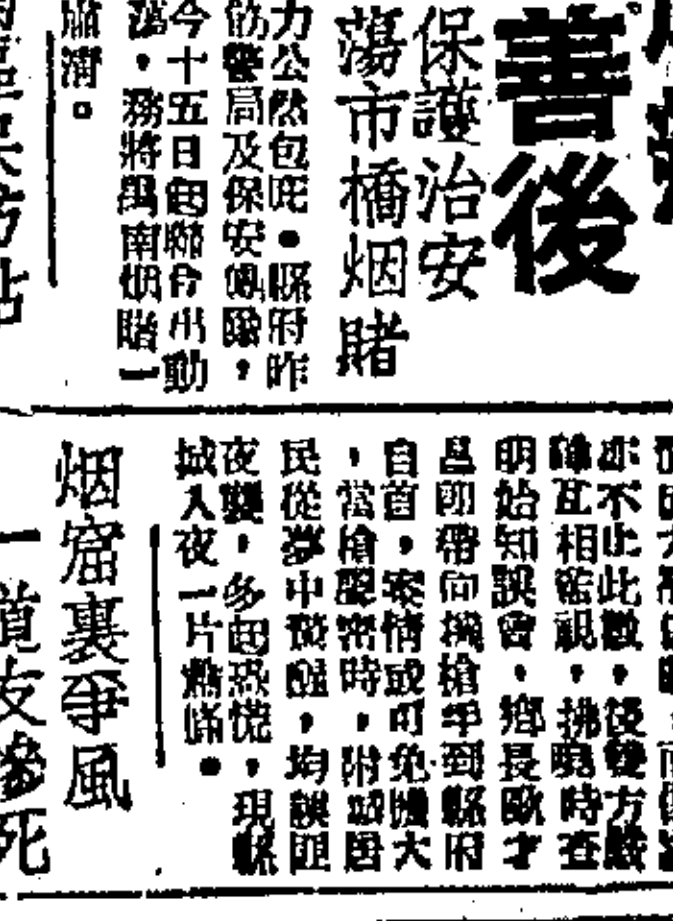 善後
保護治安
蕩市橋烟賭
力公然包庇●縣府昨
飭警局及保安傳隊，
今十五日起聯合出動
蕩，務將禺南烟賭一
肅清。
亦不止此數，後雙方嚴
互相監視，拂曉時查
明始知誤會，鄉長歐才
昌即帶同機槍手到縣府
自首，案情或可免擴大
，當槍聲密時，附城居
民從夢中驚醒，均誤匪
夜襲，多起恐慌，現縣
城入夜一片蕭條●
烟窟裏爭風
一道友慘死